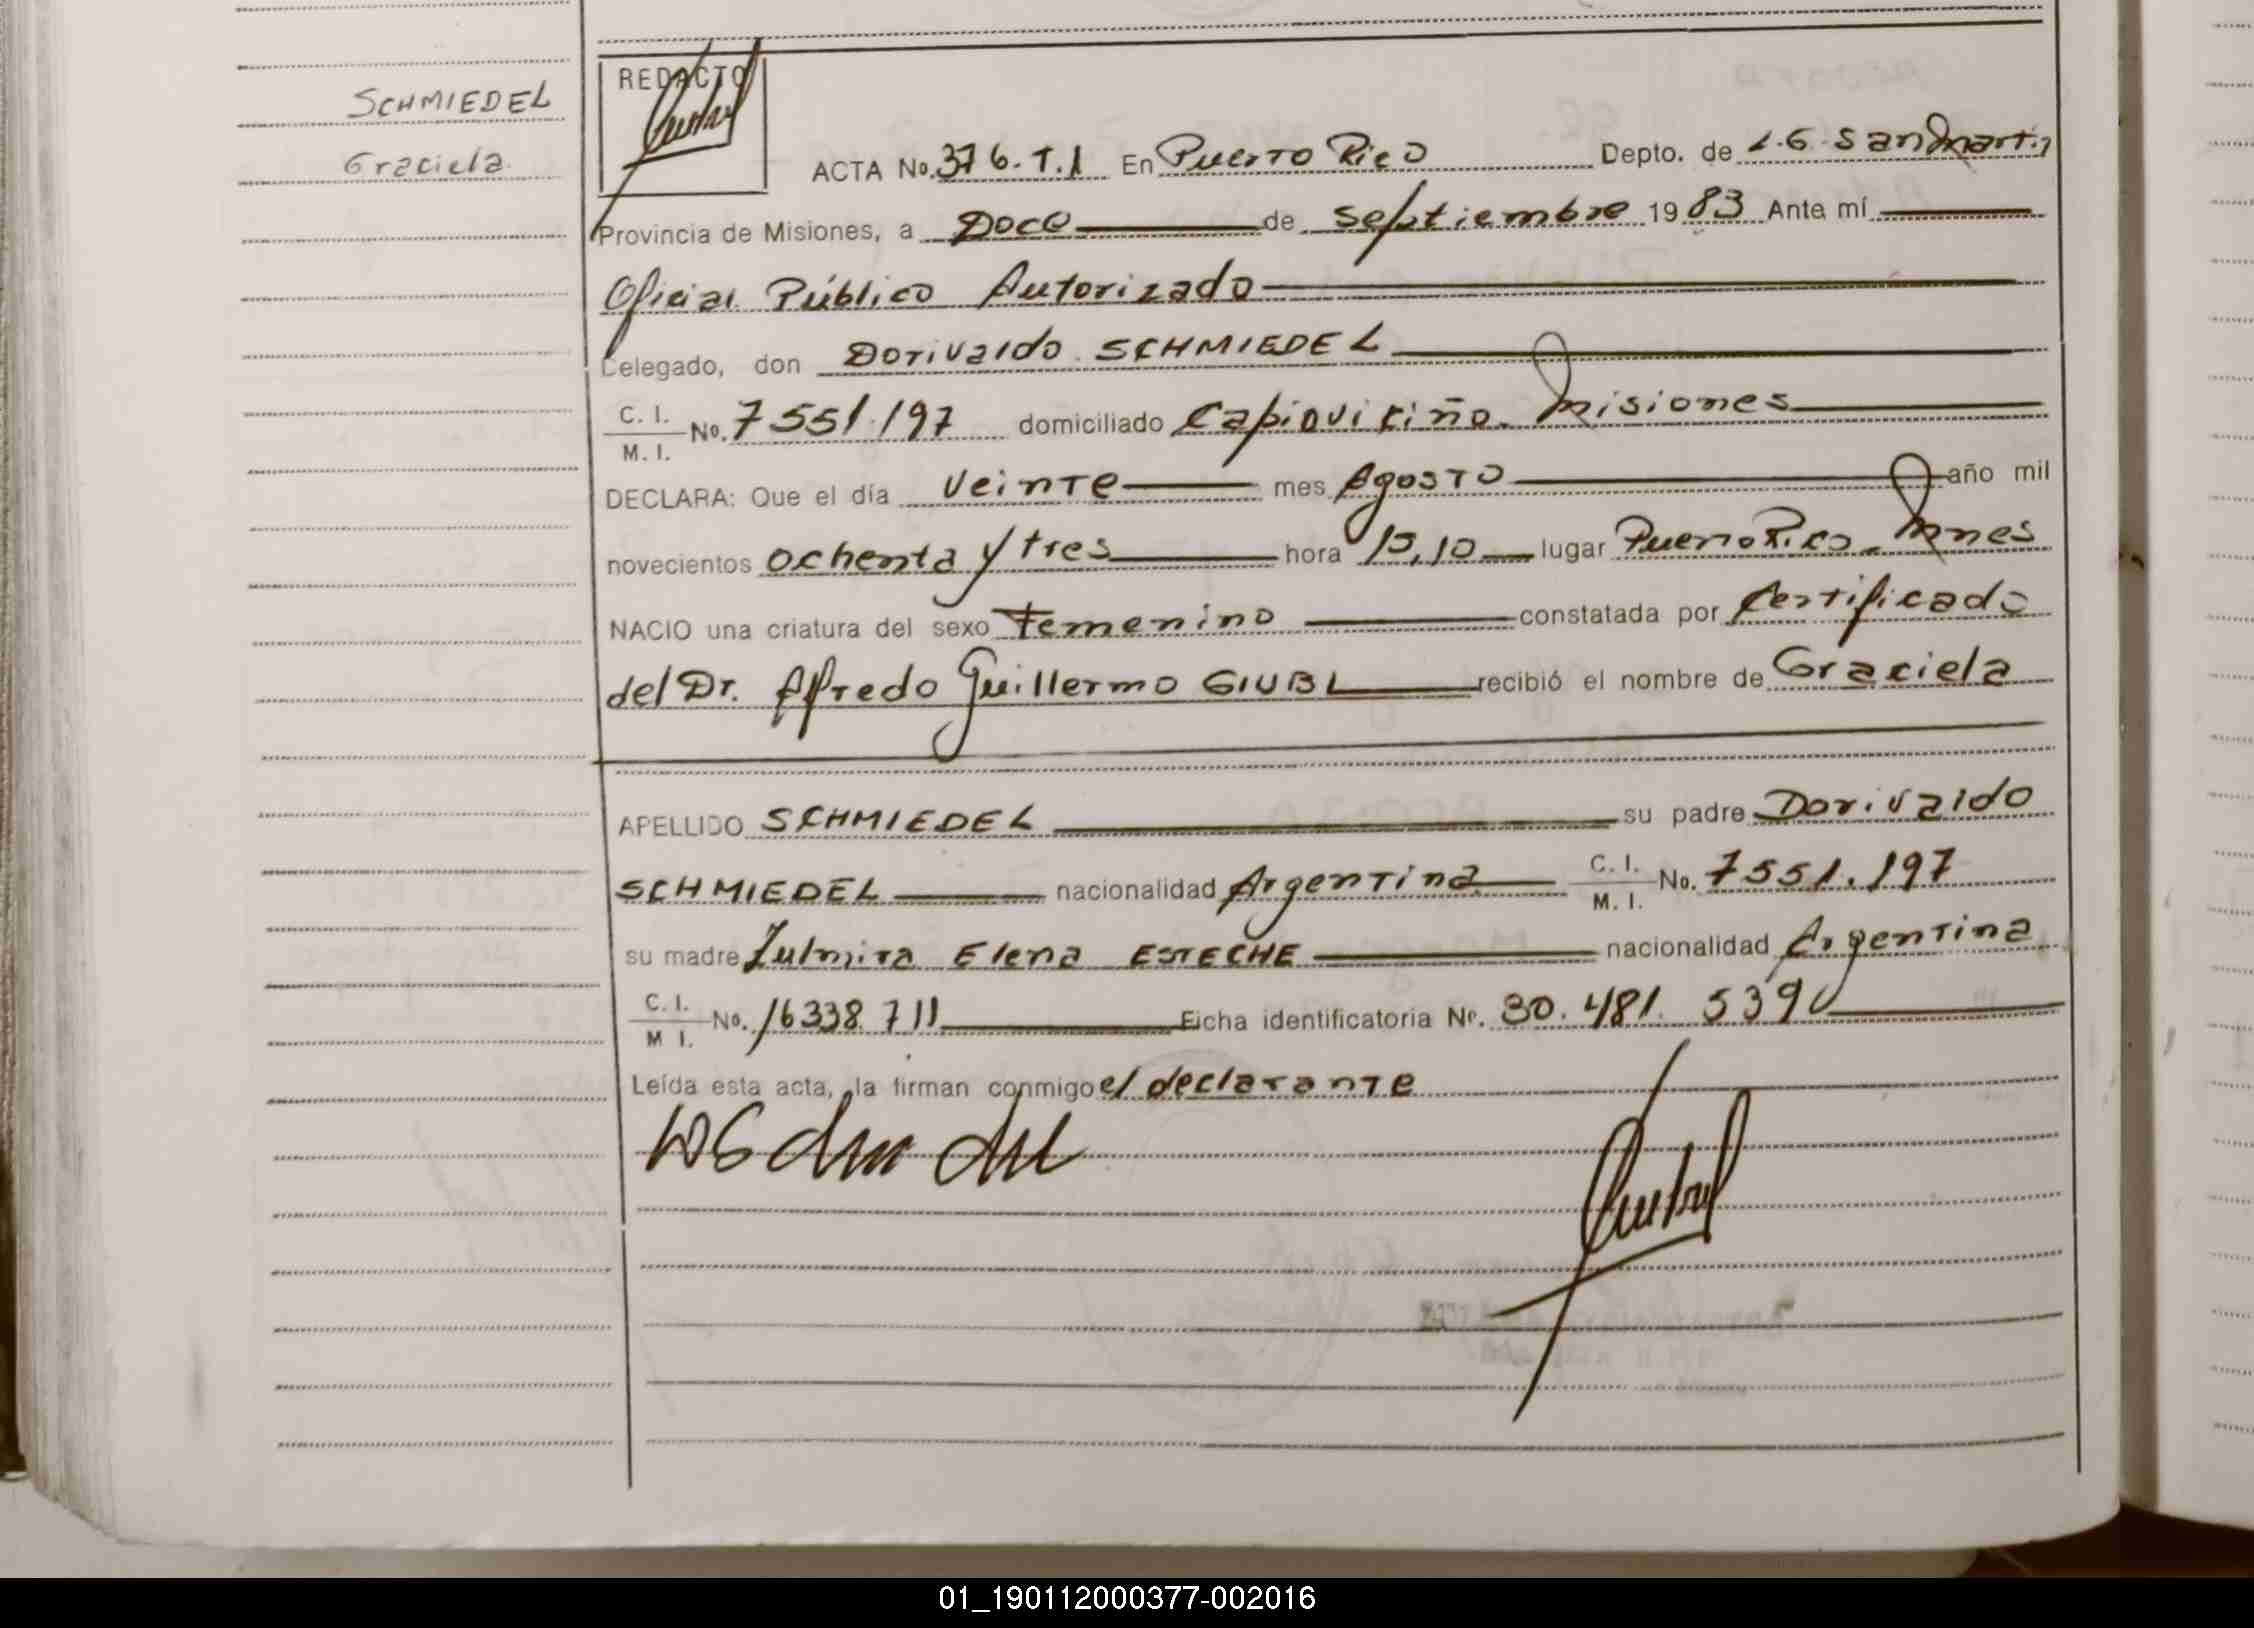 SCHMIEDEL
Graciela
REDACTO
ACTA No. 376. T.1 En Puerto Rico Depto. de L.G. San Martín
Provincia de Misiones, a Doce de Septiembre 1983 Ante mí
Oficial Público Autorizado
Delegado, don Dorivaldo SCHMIEDEL
C. I.
M. I. No. 7551.197 domiciliado Capioviciño. Misiones
DECLARA: Que el día veinte mes Agosto año mil
novecientos ochenta y tres hora 15,10 lugar Puerto Rico. Mnes
NACIO una criatura del sexo Femenino constatada por Certificado
del Dr. Alfredo Guillermo GIUBI recibió el nombre de Graciela
APELLIDO SCHMIEDEL su padre Dorivaldo
SCHMIEDEL nacionalidad Argentina C. I. M. I. No. 7551.197
su madre Zulmira Elena ESTECHE nacionalidad Argentina
C. I.
M. I. No. 16338.711 Ficha identificatoria Nº. 30.481.539
Leída esta acta, la firman conmigo el declarante
01_190112000377-002016